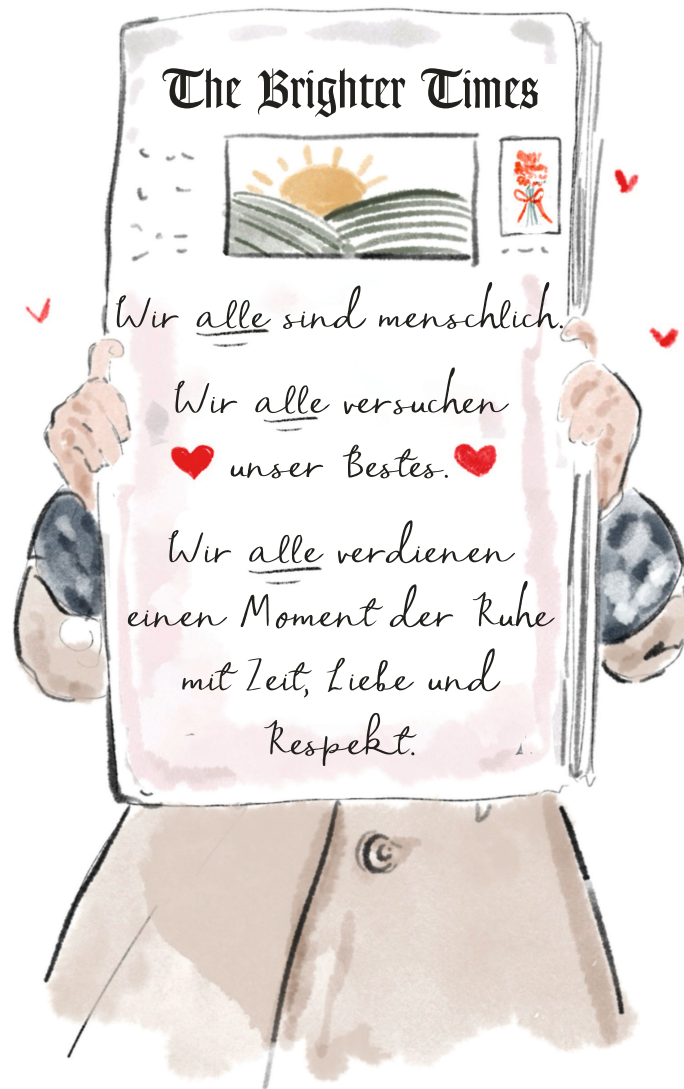 The Brighter Times
Wir alle sind menschlich.
Wir alle versuchen
unser Bestes.
Wir alle verdienen
einen Moment der Ruhe
mit Zeit, Liebe und
Respekt.